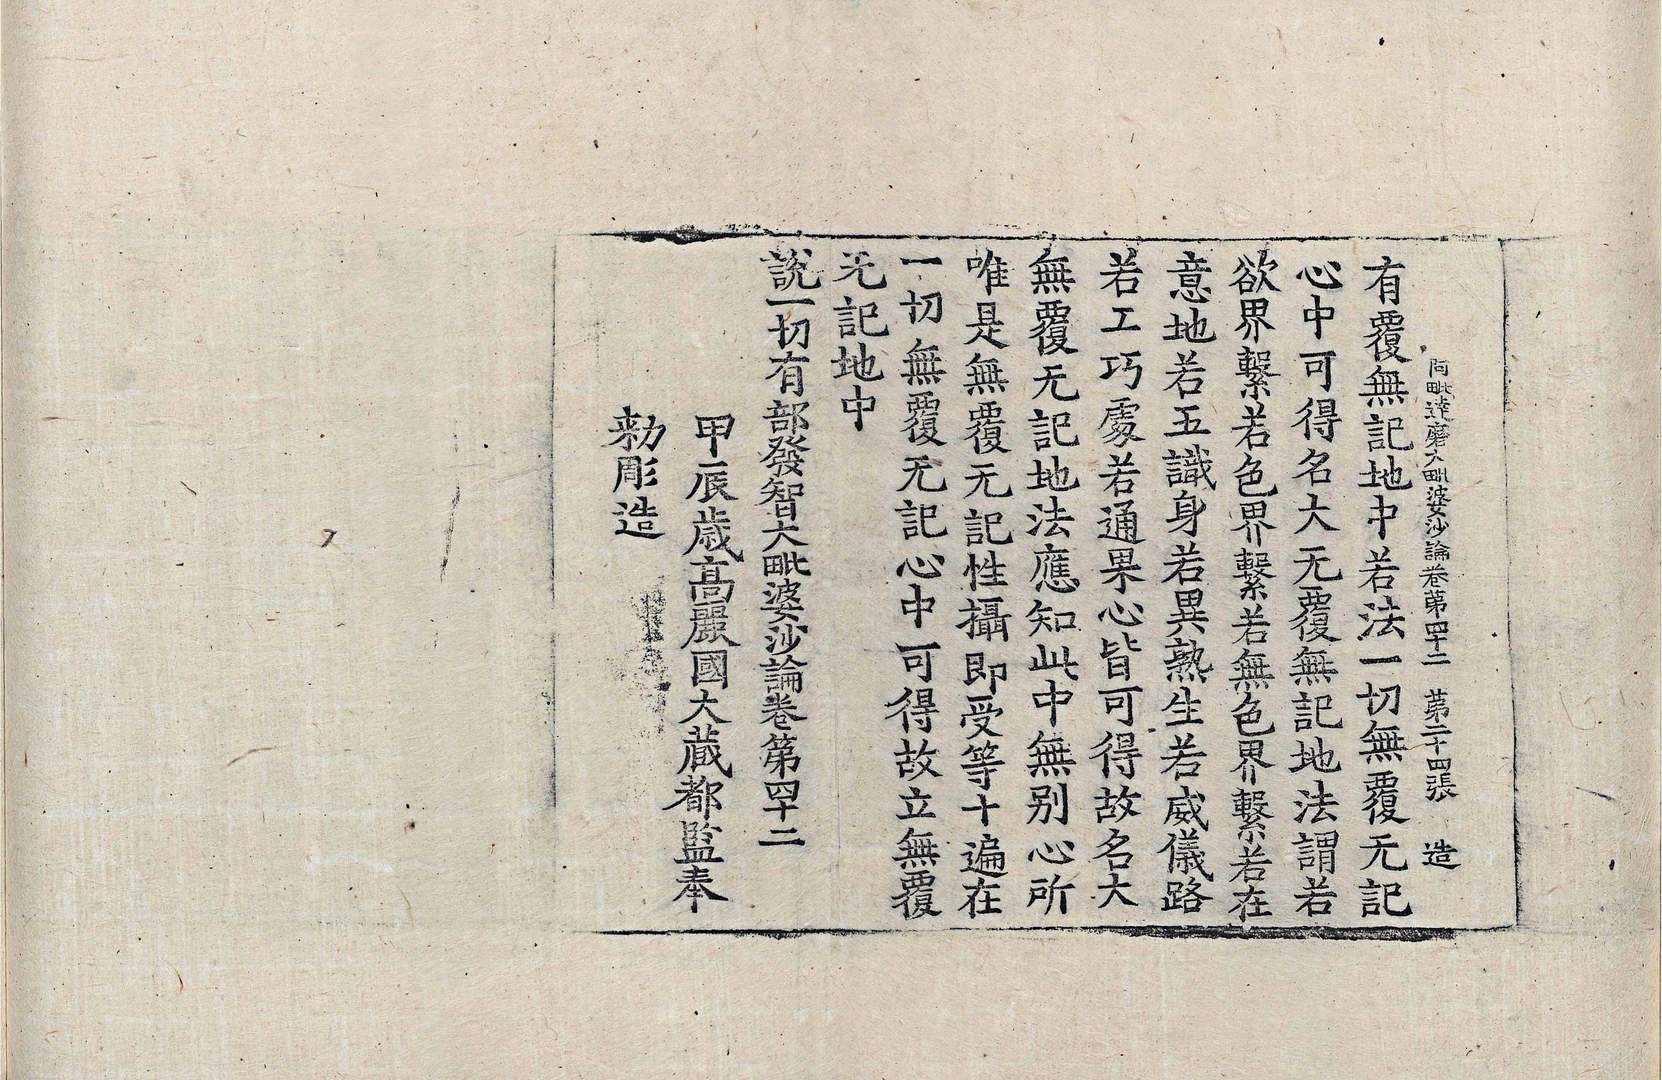 阿毗達磨大毗婆沙論卷第四十二 第二十四張 造
有覆無記地中若法一切無覆无記
心中可得名大无覆無記地法謂若
欲界繫若色界繫若無色界繫若在
意地若五識身若異熟生若威儀路
若工巧處若通果心皆可得故名大
無覆无記地法應知此中無别心所
唯是無覆无記性攝即受等十遍在
一切無覆无記心中可得故立無覆
无記地中
說一切有部發智大毗婆沙論卷第四十二
甲辰歲高麗國大藏都監奉
勑彫造